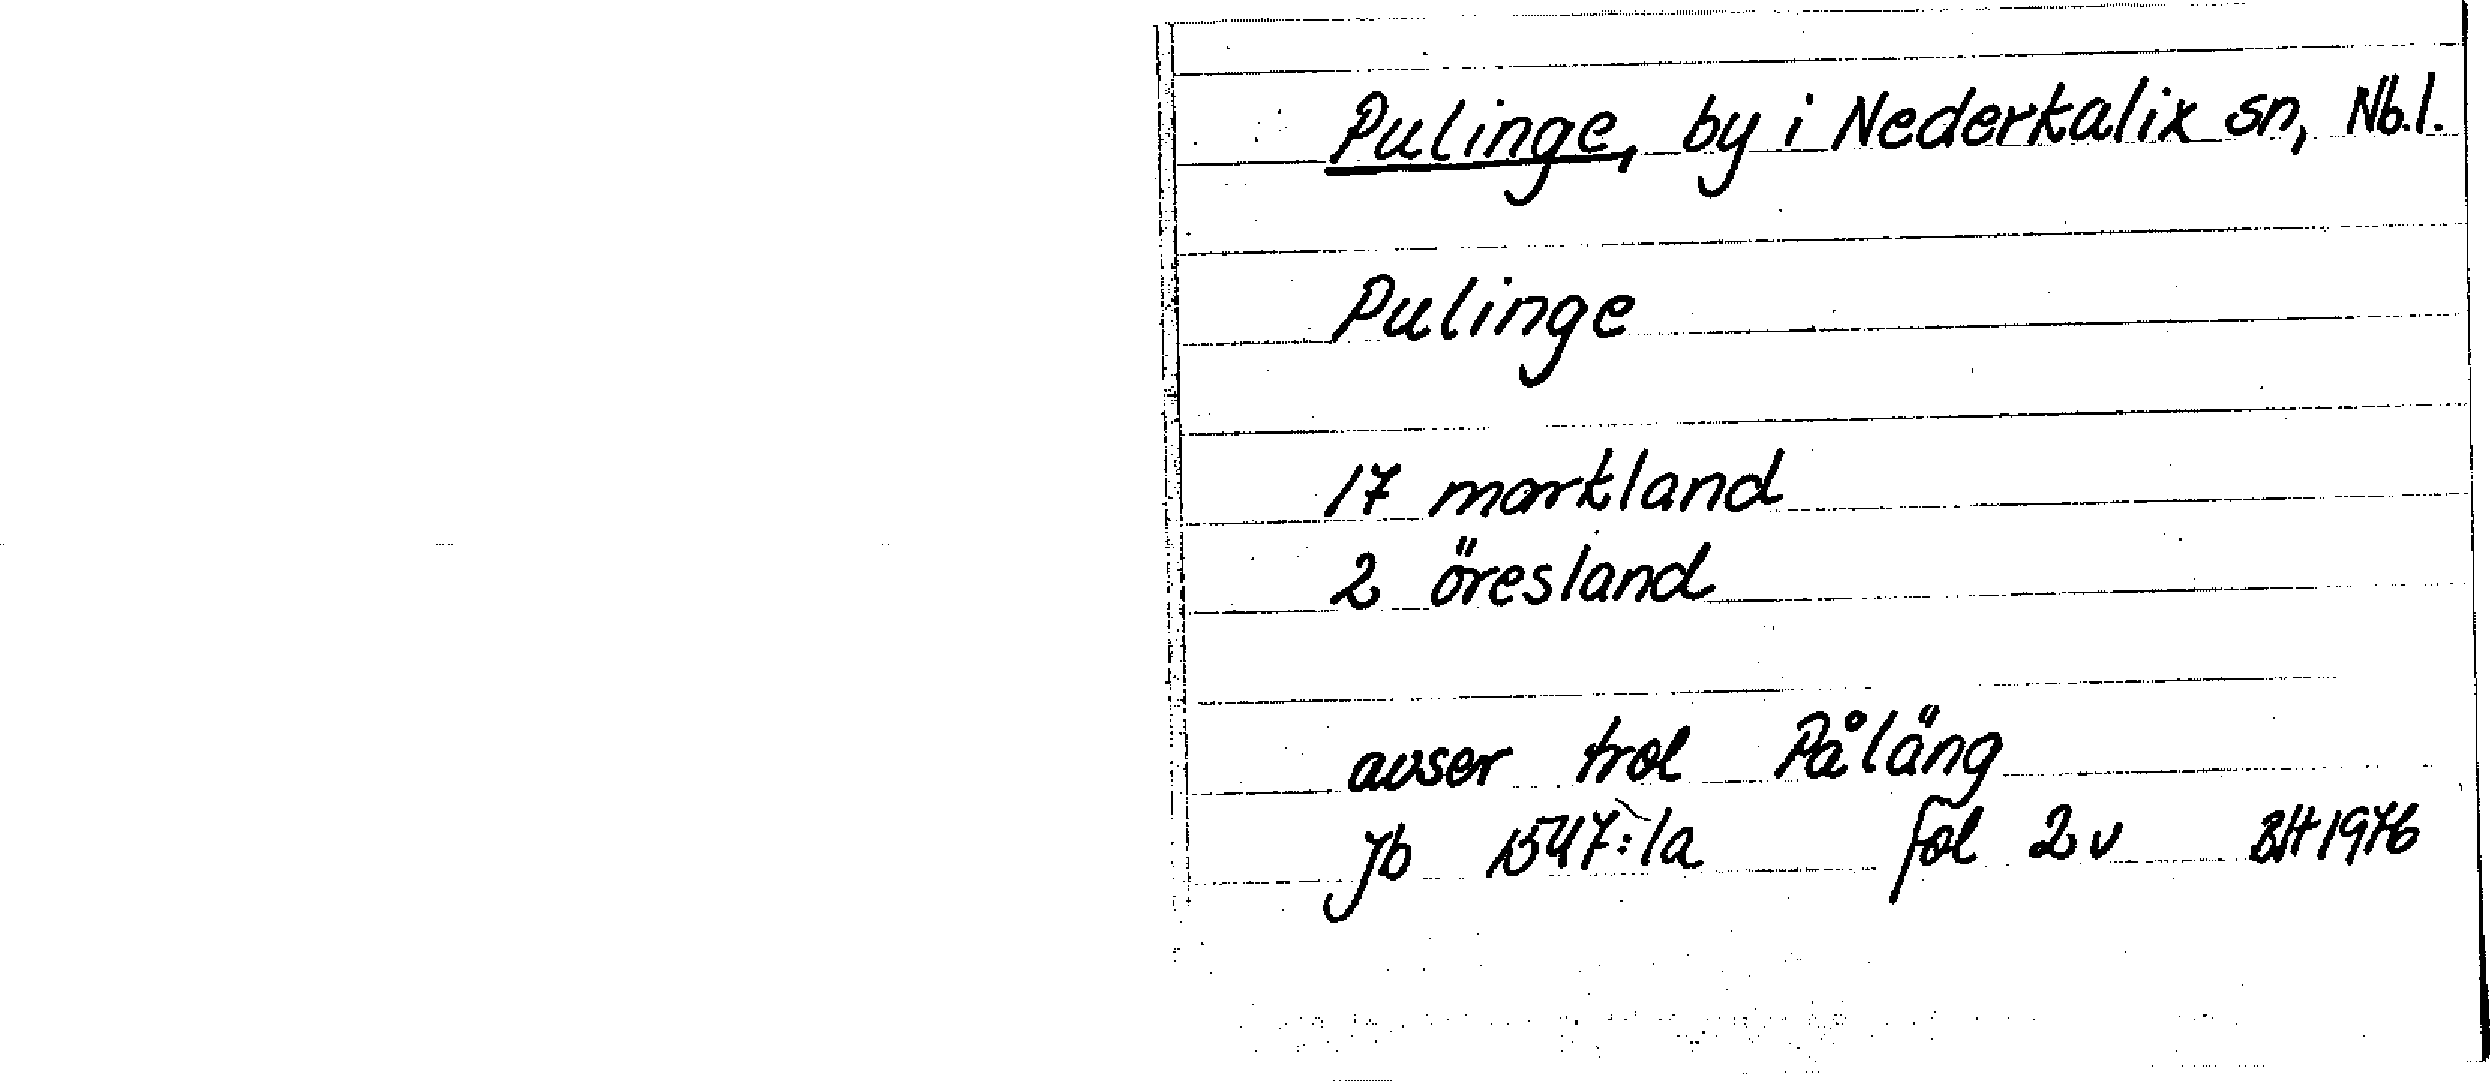 Pulinge, by i Nederkalix sn, Nb.l.
Pulinge
17 markland
2 öresland
avser trol Påläng
Jb 1547:1a fol 2v BH 1976